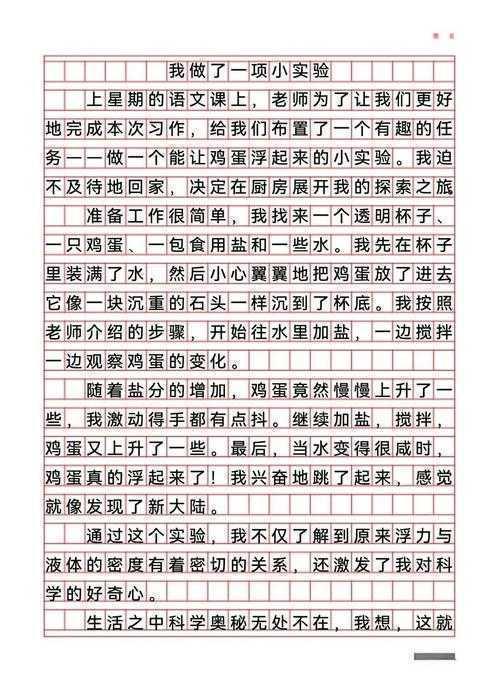 我做了一项小实验
上星期的语文课上，老师为了让我们更好
地完成本次习作，给我们布置了一个有趣的任
务——做一个能让鸡蛋浮起来的小实验。我迫
不及待地回家，决定在厨房展开我的探索之旅。
准备工作很简单，我找来一个透明杯子、
一只鸡蛋、一包食用盐和一些水。我先在杯子
里装满了水，然后小心翼翼地把鸡蛋放了进去，
它像一块沉重的石头一样沉到了杯底。我按照
老师介绍的步骤，开始往水里加盐，一边搅拌
一边观察鸡蛋的变化。
随着盐分的增加，鸡蛋竟然慢慢上升了一
些，我激动得手都有点抖。继续加盐，搅拌，
鸡蛋又上升了一些。最后，当水变得很咸时，
鸡蛋真的浮起来了！我兴奋地跳了起来，感觉
就像发现了新大陆。
通过这个实验，我不仅了解到原来浮力与
液体的密度有着密切的关系，还激发了我对科
学的好奇心。
生活之中科学奥秘无处不在，我想，这就